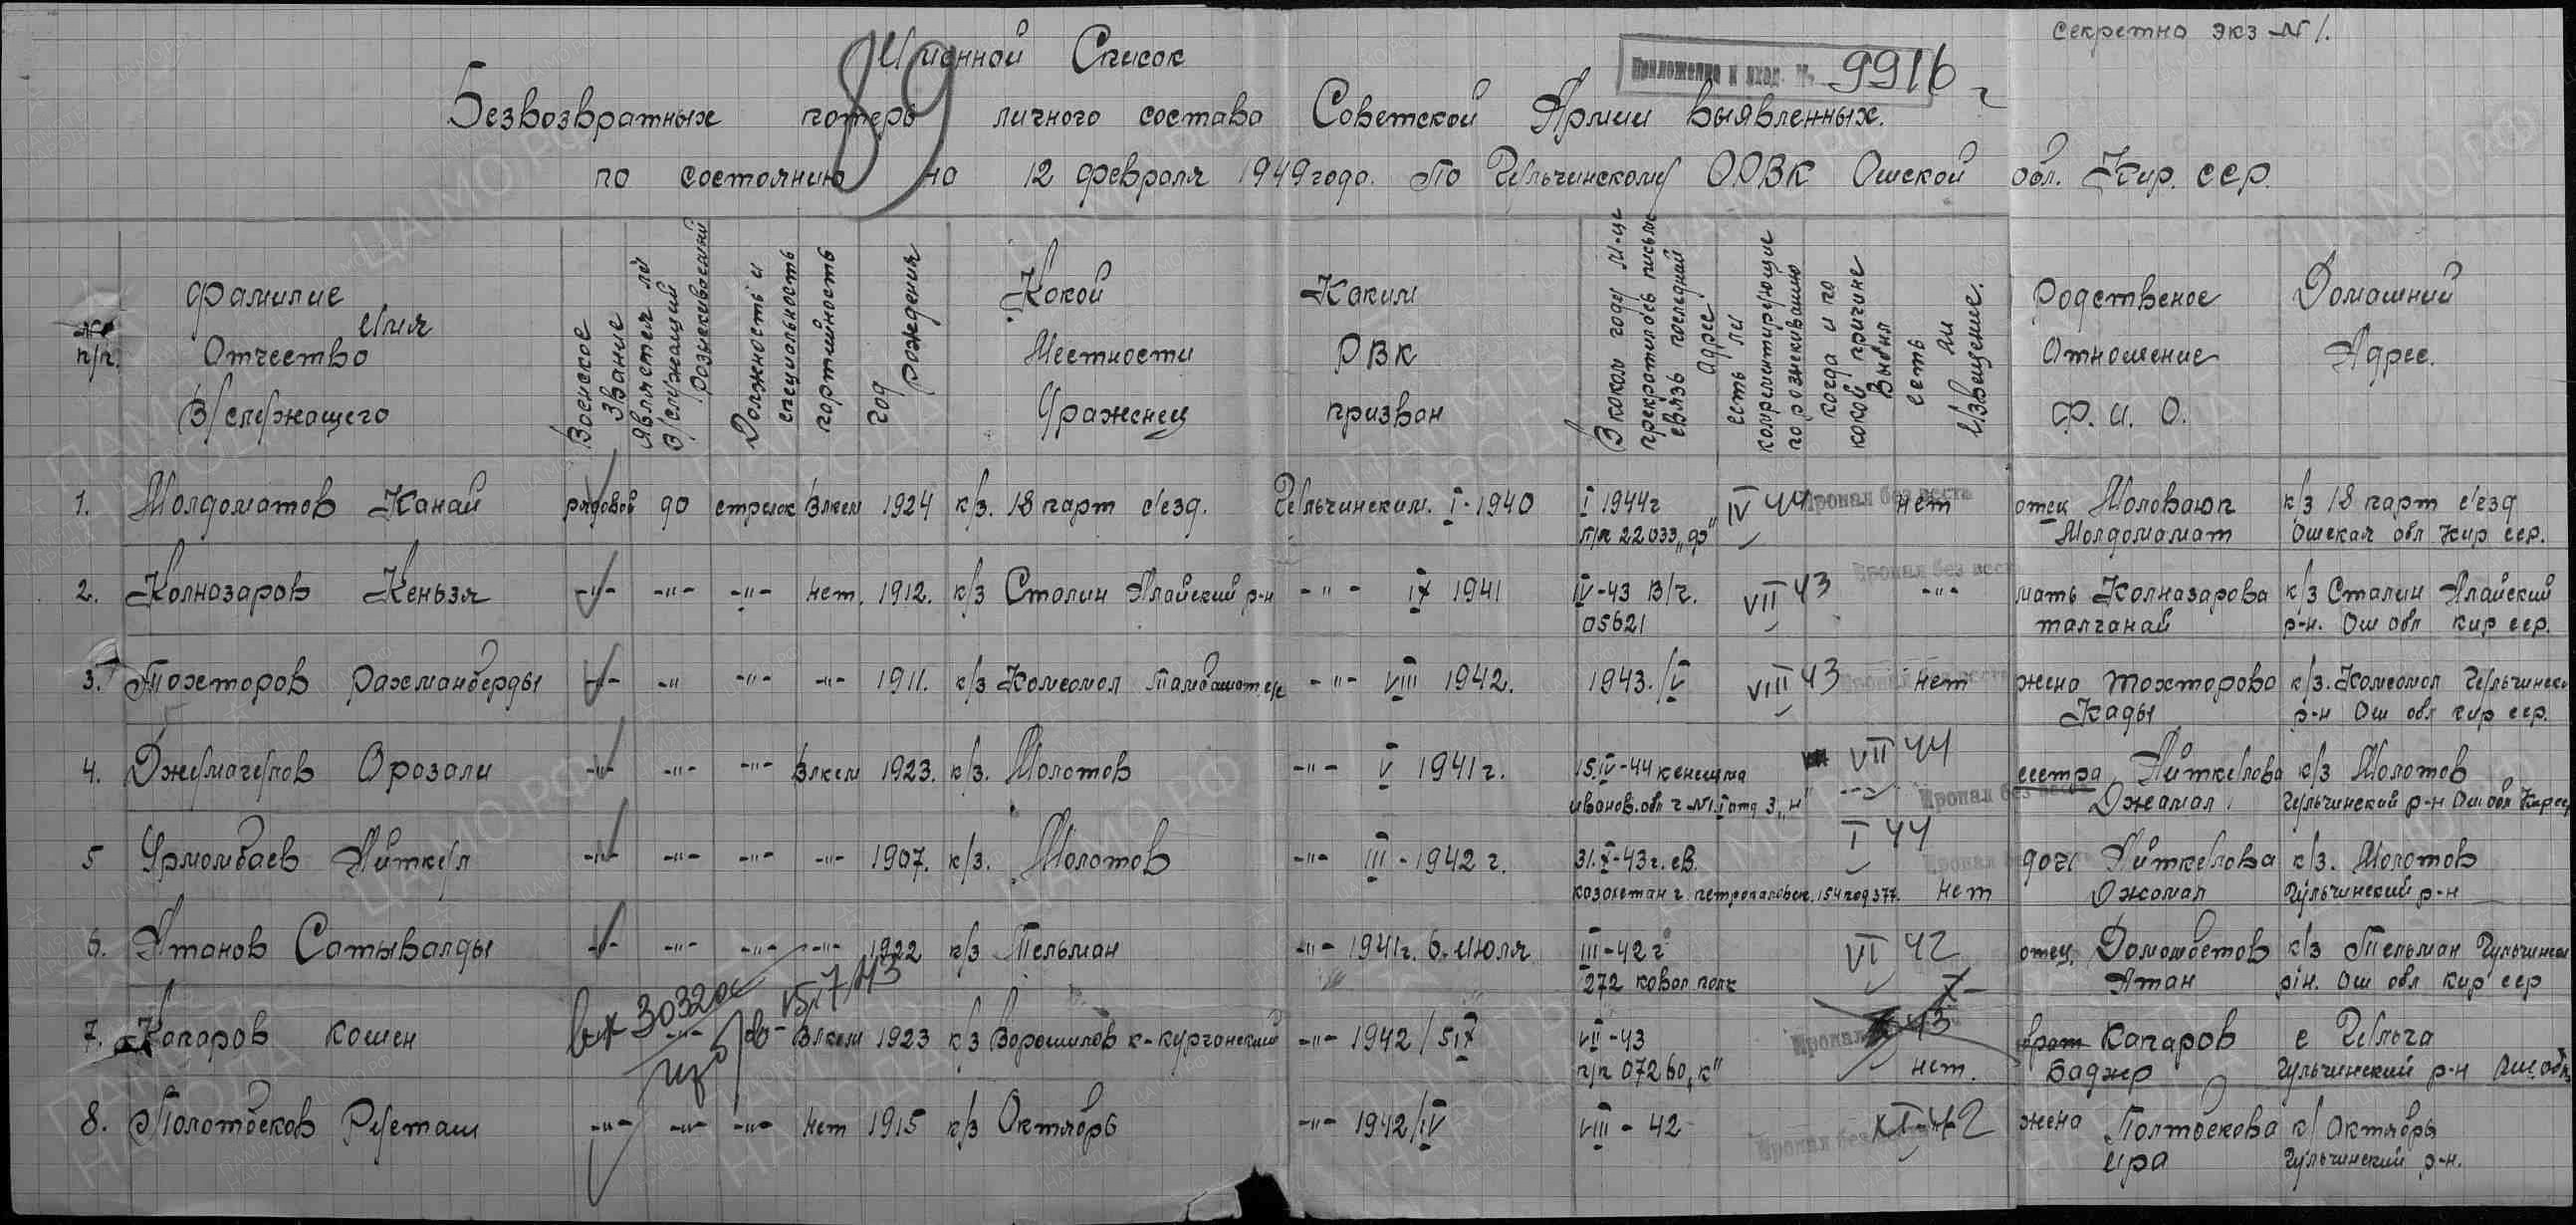 Секретно экз №1.
Именной Список
Приложение к вход. № 9916 г
89
Безвозвратных потерь личного состава Советской Армии выявленных.
по состоянию на 12 февраля 1949 года. По Гульчинскому ОРВК Ошской обл. Кир. ССР.
№ п/п.
Фамилие Имя Отчество В/служащего
Военское Звание
Является ли В/служащий разыскиваемый
Должность и специальность
партийность
год рождения
Какой Местности Уроженец
Каким РВК призван
В каком году м-це прекратилось письмен связь последний адрес
есть ли компрементирующие по разыскиванию
когда и по какой причине Выбыл
есть ли Извещение.
Родственое Отношение Ф. И. О.
Домашний Адрес.
1. Молдоматов Канай рядовой да стрелок Влксм 1924 к/з. 18 парт с'езд. Гульчинским. I-1940 I 1944г IV 44 Пропал без вести нет отец к/з 18 парт с'езд
п/я 22033 „ф" Молдомамат Ошская обл Кир сср.
2. Колназаров Кеньзя -"- -"- -"- нет. 1912. к/з Сталин Алайский р-н -"- IX 1941 IV-43 В/ч. VII 43 Пропал без вест -"- мать Колназарова к/з Сталин Алайский
05621 талганай р-н. Ош обл кир сср.
3. Тохторов Рахманберды -"- -"- -"- -"- 1911. к/з Комсомол -"- VIII 1942. 1943./V VIII 43 нет жена Тохторова к/з. Комсомол Гульчинск
Кады р-н Ош обл кир сср.
4. Джумагулов Орозали -"- -"- -"- Влксм 1923. к/з. Молотов -"- V 1941г. 15.IV-44 кенешма VII 44 Пропал без вести сестра Айткулова к/з Молотов
иванов. обл ч №1. I отд З „н" -"- Джамал. Гульчинский р-н Ош обл Кир сс
5 Урмомбаев Айткул -"- -"- -"- -"- 1907. к/з. Молотов -"- III-1942 г. 31.X-43 г. св. I 44 Пропал доч Айткулова к/з. Молотов
казахстан г. петропаловск. нет Джамал Гульчинский р-н
6. Атанов Сатывалды -"- -"- -"- -"- 1922 к/з Тельман -"- 1941г. 6. Июля III-42 г VI 42 отец. Домомбетов к/з Тельман Гульчинск
272 кавал полк Атан р/н. Ош обл кир сср
вх 30320с
7. Капаров кошен -"- Влксм 1923 к/з Ворошилов к-курганский -"- 1942 / 5 IX VII-43 Пропал 43 брат Капаров с Гульча
п/п 07260 „к" нет. Баджр Гульчинский р-н Ош. обл
8. Полотбеков Русташ -"- -"- -"- нет 1915 к/з Октябрь -"- 1942/IV VIII-42 Пропал без XI-42 жена Полтбекова к/ Октябрь
ира Гульчинский р-н.